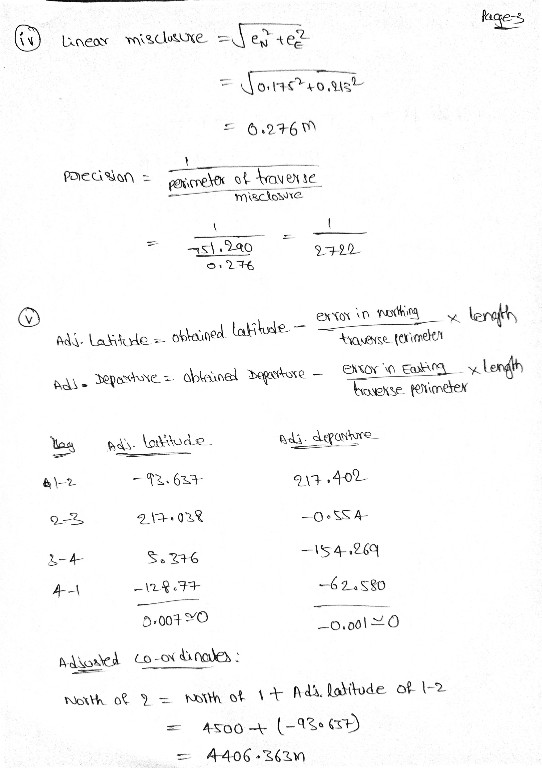 Page-3
(iv) Linear misclosure = √e_N² + e_E²
= √0.175² + 0.213²
= 0.276 m
Precision = 1 / (perimeter of traverse / misclosure)
= 1 / (751.290 / 0.276) = 1 / 2722
(v)
Adj. Latitude = obtained latitude − error in northing / traverse perimeter × length
Adj. Departure = obtained Departure − error in Easting / traverse perimeter × length
Leg Adj. latitude Adj. departure
1-2 -93.637 217.402
2-3 217.038 -0.554
3-4 5.376 -154.269
4-1 -128.77 -62.580
0.007 ≃ 0 -0.001 ≃ 0
Adjusted co-ordinates:
North of 2 = North of 1 + Adj. latitude of 1-2
= 4500 + (-93.637)
= 4406.363m